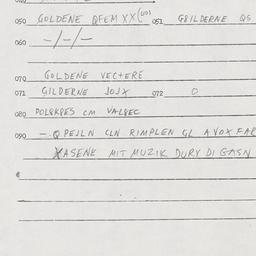 050 GOLDENE QFEM XX(uoi 051 GBILDERNE QS
060 -/-/-
070 GOLDENE VECTERE
071 GILDERNE JOJX 072 O
080 POLBKPES CM VALBEC
090 - Q PEJLN CLN RIMPLEN GL A VOX FAR
XASENK MIT MUZIK DURY DI GASN